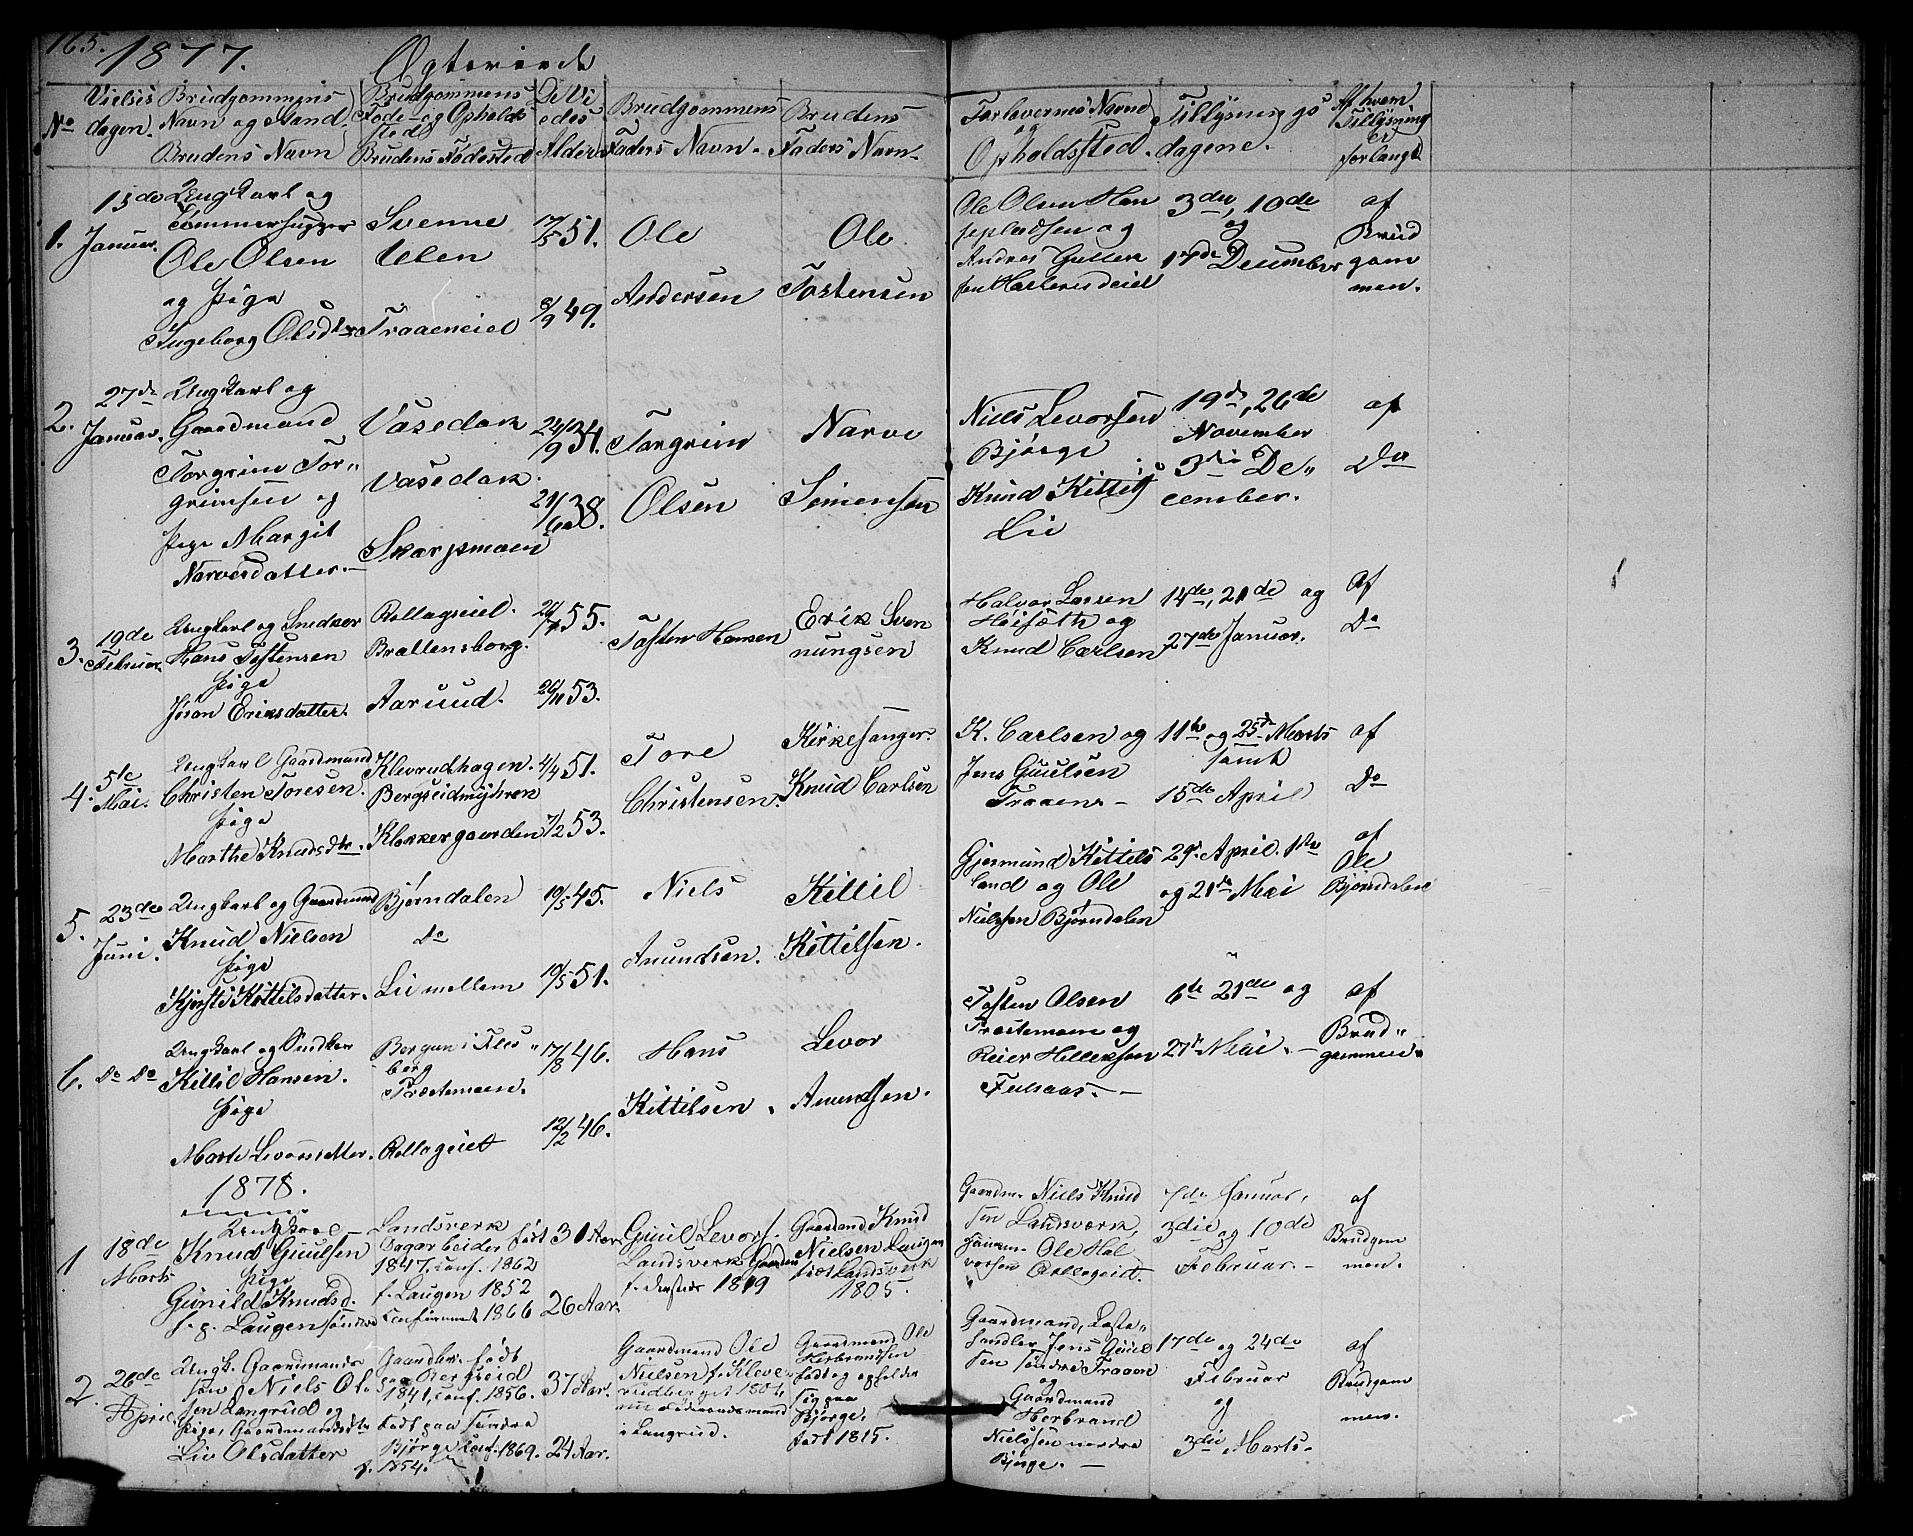 165. 1877. Ægteviede
No
Vielses
dagen.
Brudgommens
Navn og Stand
Brudens Navn
Brudgommens
Føde- og Opholds
sted
Brudens Fødested
De Vi
edes
Alder
Brudgommens
Faders Navn.
Brudens
Faders Navn
Forlovernes Navne
og
Opholdssted.
Tillysnings
dagene.
Af hvem
Tillysning
er
forlangt
1.
15de
Januar.
Ungkarl og
Ole Olsen
og Pige
Ingeborg Olsdtr
Svenne
Ulen
Traaeneiet
17/5 51.
8/9 49.
Ole
Andersen
Ole
Tostensen
Ole Olsen
og
Andres
3die, 10de
og
17de December
af
Brud
gom
men.
2.
27de
Januar.
Ungkarl og
Gaardmand
Torgrim Tor„
grimsen og
Pige Margit
Narvesdatter.
Vasedok
Vasedok
Skarpmoen
34.
38.
Torgrim
Olsen
Narve
Simensen
Niels Levorsen
Bjørge
Knud Kittils
Lie
19de, 26de
November
3die De„
cember.
af
Do
3.
19de
Februar.
Ungkarl og Snedker
Hans Tostensen
Pige
Jøran Eriksdatter.
Rollagseiet.
Brattensborg.
Aaruud.
55.
53.
Tosten Hansen
Erik Sven
nungsen
Halvor Larsen
Høisæth og
Knud Carlsen
14de, 21de og
27de Januar.
Af
Do
4.
5te
Mai.
Ungkarl Gaardmand
Christen Toresen.
Pige
Marthe Knudsdtr.
Klevrudhagen.
Bergseidmyhren
Klokkergaarden
4/4 51.
7/2 53.
Tore
Christensen.
Kirkesanger.
Knud Carlsen
K. Carlsen og
Jens Guulsen
Traaen
11te og 25de Marts
samt
15de April
af
Do
5.
23de
Juni.
Ungkarl og Gaardmand
Knud Nielsen
Pige
Kjersti Kittilsdatter.
Bjørndalen
Do
Lie mellem
19/5 45.
19/5 51.
Niels
Anundsen.
Kittil
Kittilsen.
Gjermund Kittils
land og Ole
Nielssen Bjørndalen
29. April. 1ste
og 21de Mai
af
Ole
Bjørndalen
6.
Do Do
Ungkarl og
Kittil Hansen.
Pige
Marte Levorsdatter.
Bergan i Fles„
berg
Træetmoen.
Rollageiet
17/8 46.
12/2 46.
Hans
Kittilsen.
Levor
Amundsen.
Tosten Olsen
og
Reier Helleksen
Fulsaas.
6te 21de og
27de Mai.
af
Brud„
gommen.
1878.
1
18de
Marts
Ungkarl
Knud Guulsen
Pige
Gunild Knudsd.
f. p. Laugen søndre
Landsverk
Dagarbeider født
1847, conf. 1862
f. Laugen 1852
Confirmeret 1866
31 Aar
26 Aar
Guul Levors.
Landsverk
1819
Gaardmd Knud
Nielsen Laugen
født Landsverk
1805.
Gaardm. Niels Knud
sen Landsværk,
Ole Hal
vorsen Rollageiet.
7de Januar,
3die og 10de
Februar.
af
Brudgom
men.
2.
26de
April.
Ungk. Gaardmands
søn Niels Ol„
sen Langrud og
Pige, Gaardmandsdtr
Liv Olsdatter
født
paa Bergseid
1841, conf. 1856.
født paa søndre
Bjørge conf. 1869.
f. 1854.
37 Aar.
24 Aar.
Gaardmand Ole
Nielsen f. Kleve
rudberget 1804
i Langrud.
Gaardmand Ole
Herbrandsen
født og opholder
sig paa
Bjørge.
født 1815.
Gaardmand, Laste„
handler Jens Guul
sen søndre Traaen
og
Gaardmand
Herbrand
Nielssen nordre
Bjørge.
17de og 24de
Februar
og
3die Marts.
af
Brudgom
men.